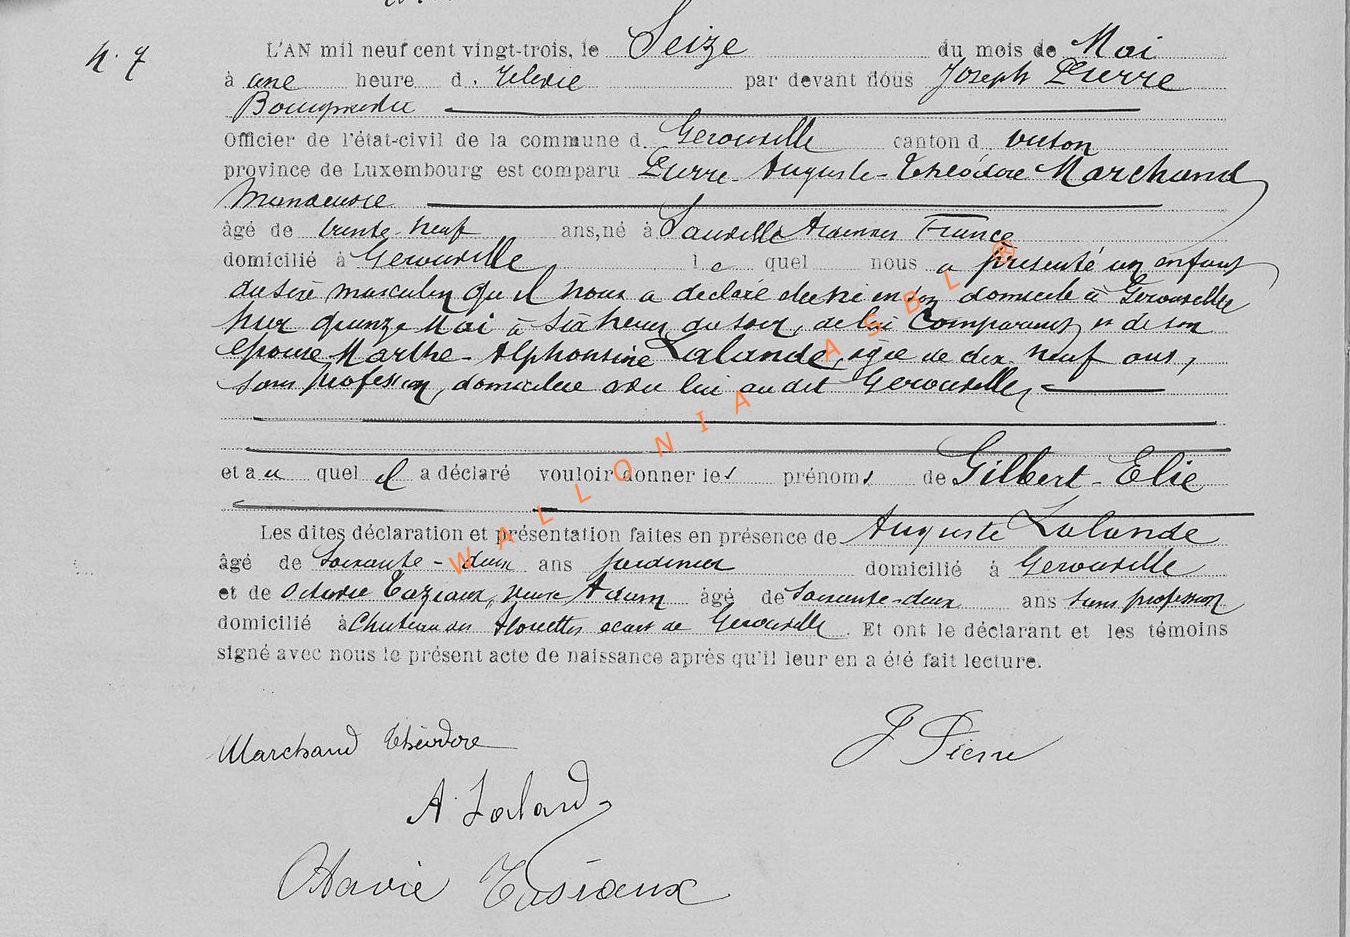 N. 7
L'AN mil neuf cent vingt-trois, le Seize du mois de Mai
à une heure d. relevée par devant nous Joseph Pierre
Bourgmestre
Officier de l'état-civil de la commune d. Gerouville canton d Virton
province de Luxembourg est comparu Pierre-Auguste-Théodore Marchand
âgé de trente-neuf ans, né à Sauville Ardennes France
domicilié à Gerouville le quel nous a présenté un enfant
du sexe masculin qu'il nous a déclaré être né en son domicile à Gerouville
hier quinze Mai à six heures du soir, de lui Comparant et de son
épouse Marthe-Alphonsine Lalande, agée de dix-neuf ans,
sans profession, domiciliée avec lui au dit Gerouville,
et au quel il a déclaré vouloir donner les prénoms de Gilbert-Elie
Les dites déclaration et présentation faites en présence de Auguste Lalande
âgé de Soixante-deux ans jardinier domicilié à Gerouville
et de Octavie Taziaux, veuve Adam âgé de Soixante-deux ans sans profession
domicilié à Chateau des Alouettes écart de Gerouville. Et ont le déclarant et les témoins
signé avec nous le présent acte de naissance après qu'il leur en a été fait lecture.
Marchand Théodore
J Pierre
A. Laland
Octavie Tasiaux
WALLONIA ASBL ®